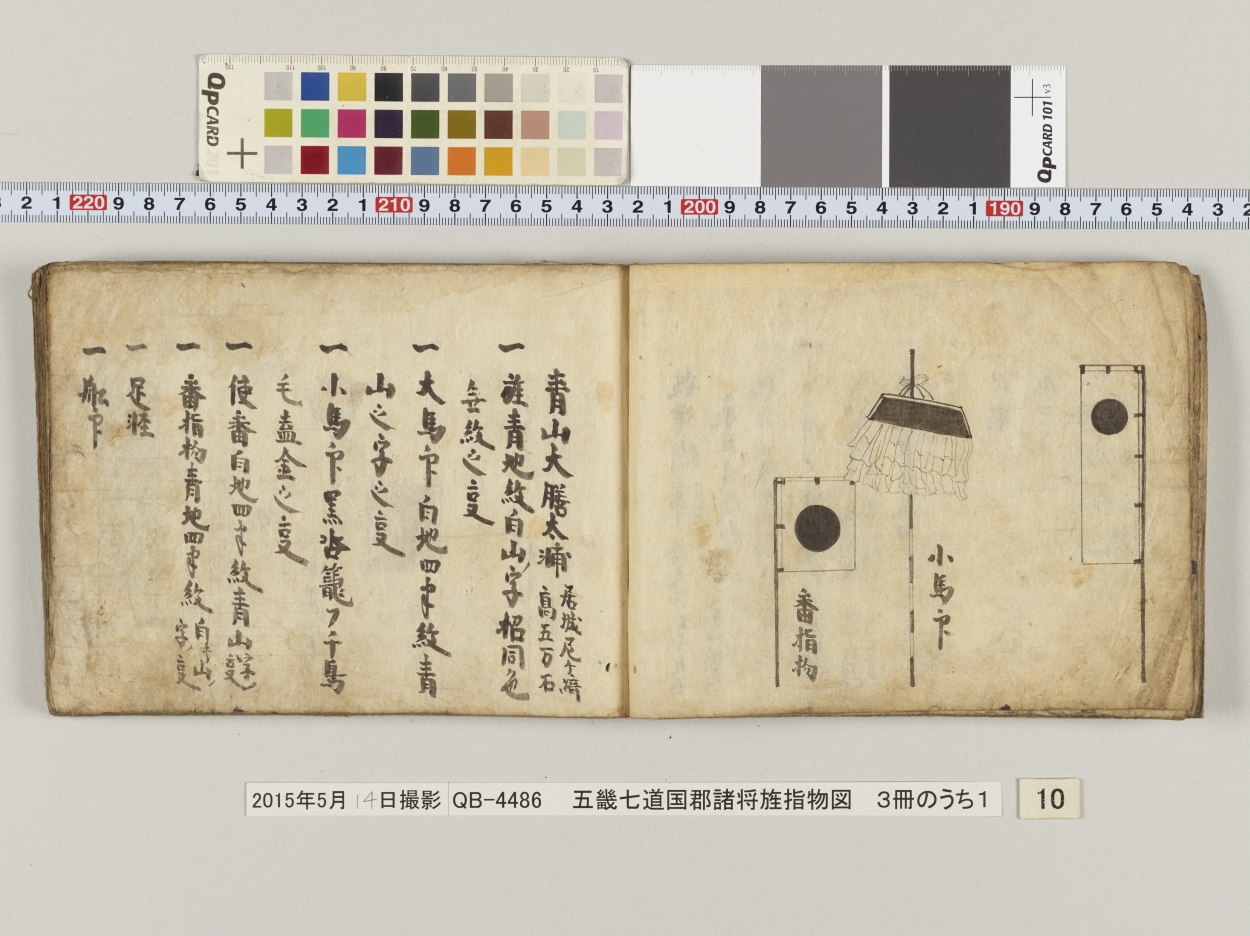 QPCARD 201
QPCARD 101 v3
2 1 220 9 8 7 6 5 4 3 2 1 210 9 8 7 6 5 4 3 2 1 200 9 8 7 6 5 4 3 2 1 190 9 8 7 6 5 4 3 2
小馬印
番指物
青山大膳太輔
居城尼ヶ崎
高五万石
一 旌青地紋白山ノ字招同色
無紋之㕝
一 大馬印白地四半紋青
山之字之㕝
一 小馬印黒塗籠ノ千鳥
毛蓋金之㕝
一 使番白地四半紋青山ノ字之㕝
一 番指物青地四半紋白キ山ノ字ノ㕝
一 足軽
一 船印
2015年5月14日撮影
QB-4486 五畿七道国郡諸将旌指物図 3冊のうち1
10